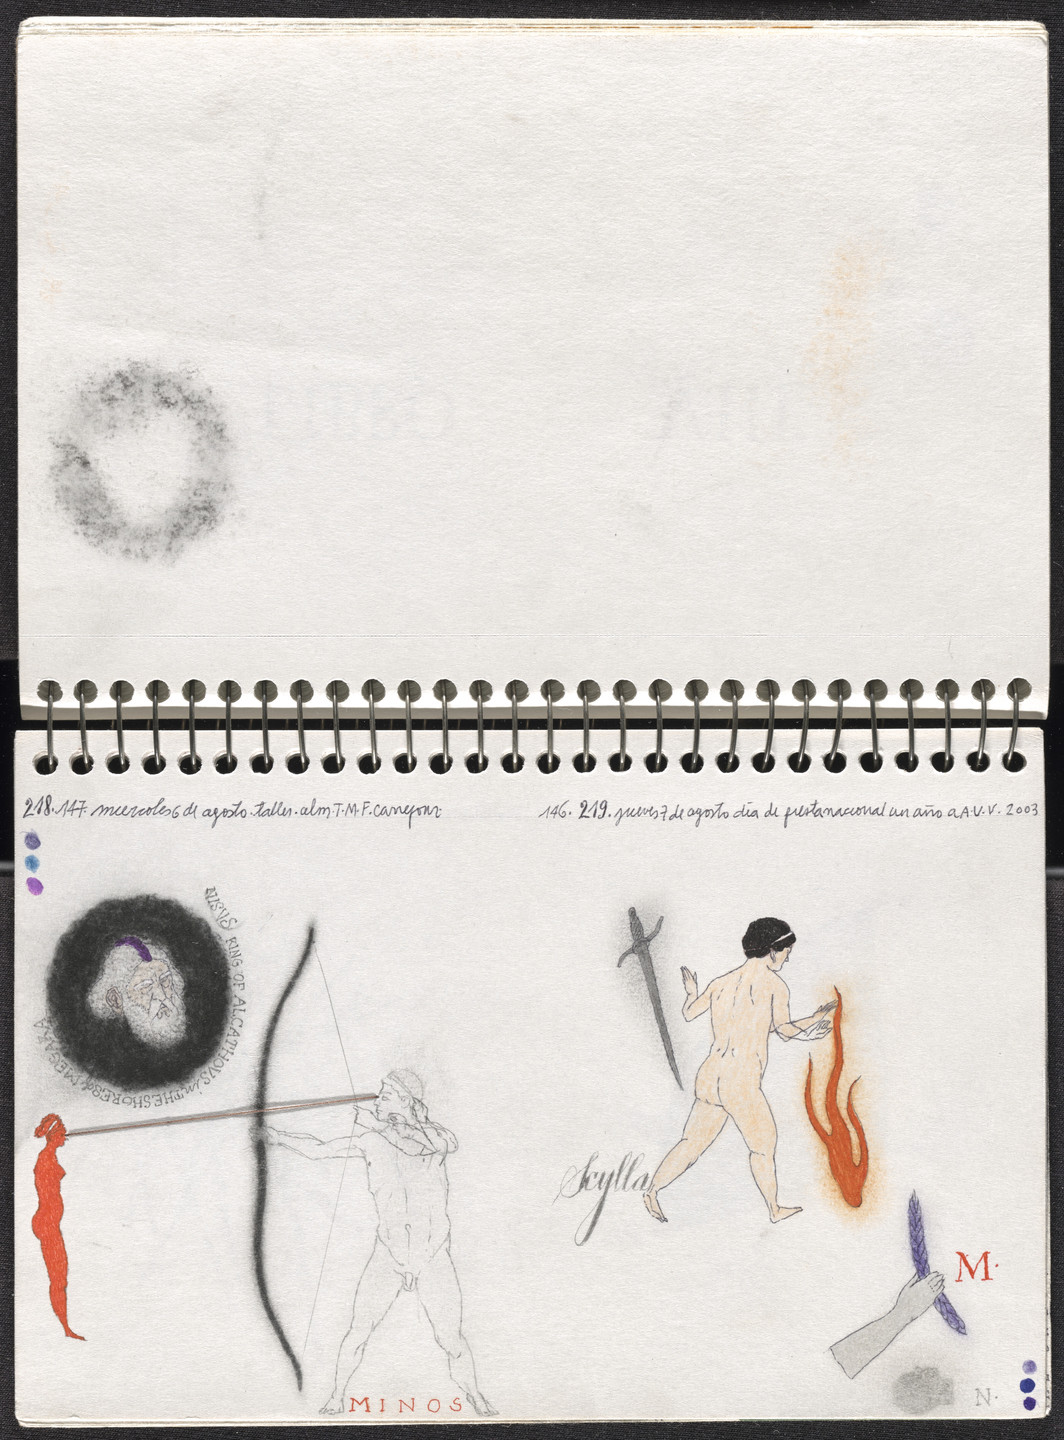 218.147. miercoles 6 de agosto. taller. alm. T.M.F. Carrefour
146. 219. jueves 7 de agosto día de fiesta nacional un año a A.V.V. 2003
KING OF ALCATHOUS in THE SHORES of MEGARA
Scylla
M.
MINOS
N.